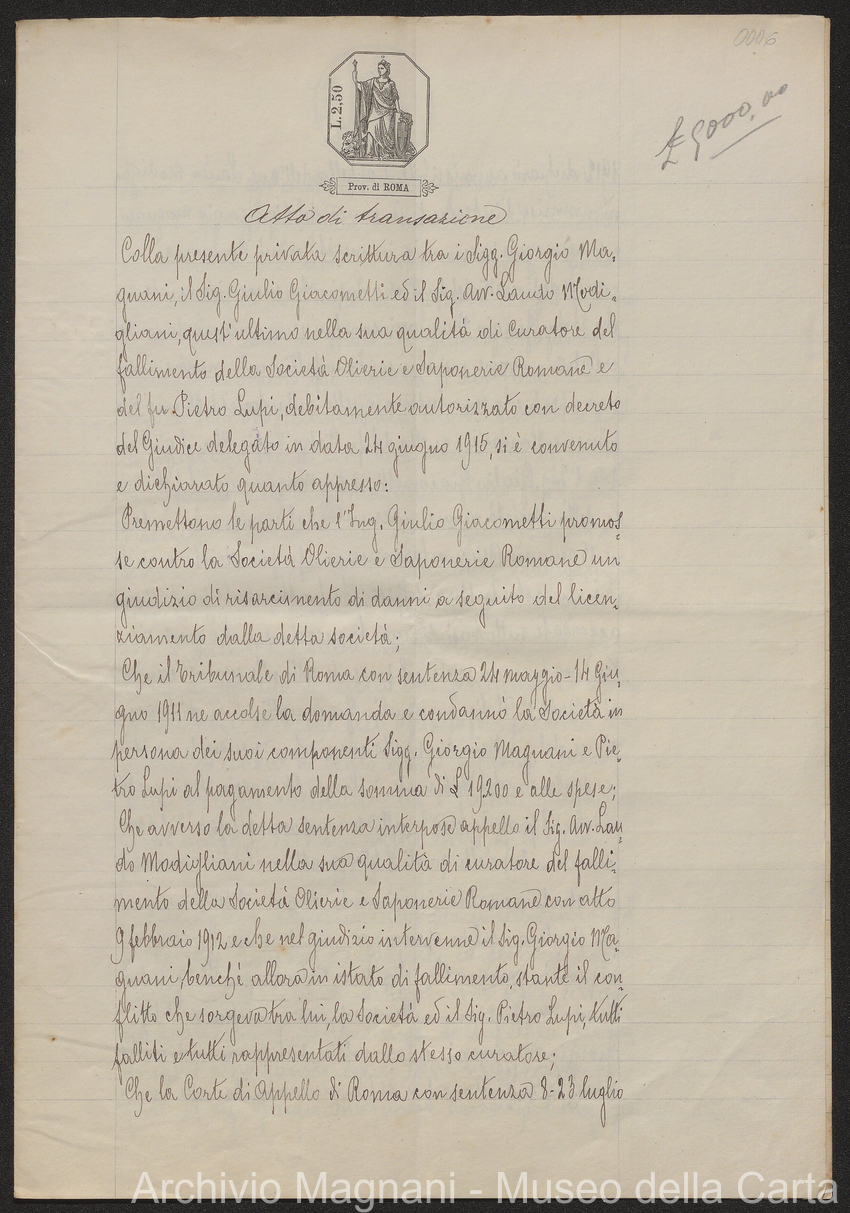 0006
L. 2,50
£ 9000,00
Prov. di ROMA
Atto di transazione
Colla presente privata scrittura tra i Sigg. Giorgio Ma-
gnani, il Sig. Giulio Giacometti ed il Sig. Avv. Laudo Modi-
gliani, quest'ultimo nella sua qualità di Curatore del
fallimento della Società Olierie e Saponerie Romane e
del fu Pietro Lupi, debitamente autorizzato con decreto
del Giudice delegato in data 24 giugno 1915, si è convenuto
e dichiarato quanto appresso:
Premettono le parti che l'Ing. Giulio Giacometti promos-
se contro la Società Olierie e Saponerie Romane un
giudizio di risarcimento di danni a seguito del licen-
ziamento dalla detta società;
Che il Tribunale di Roma con sentenza 24 maggio-14 Giu-
gno 1911 ne accolse la domanda e condannò la Società in
persona dei suoi componenti Sigg. Giorgio Magnani e Pie-
tro Lupi al pagamento della somma di £ 19200 e alle spese;
Che avverso la detta sentenza interpose appello il Sig. Avv. Lau-
do Modigliani nella sua qualità di curatore del falli-
mento della Società Olierie e Saponerie Romane con atto
9 febbraio 1912 e che nel giudizio intervenne il Sig. Giorgio Ma-
gnani, benchè allora in istato di fallimento, stante il con-
flitto che sorgeva tra lui, la Società ed il Sig. Pietro Lupi, tutti
falliti e tutti rappresentati dallo stesso curatore;
Che la Corte di Appello di Roma con sentenza 8-23 luglio
Archivio Magnani - Museo della Carta